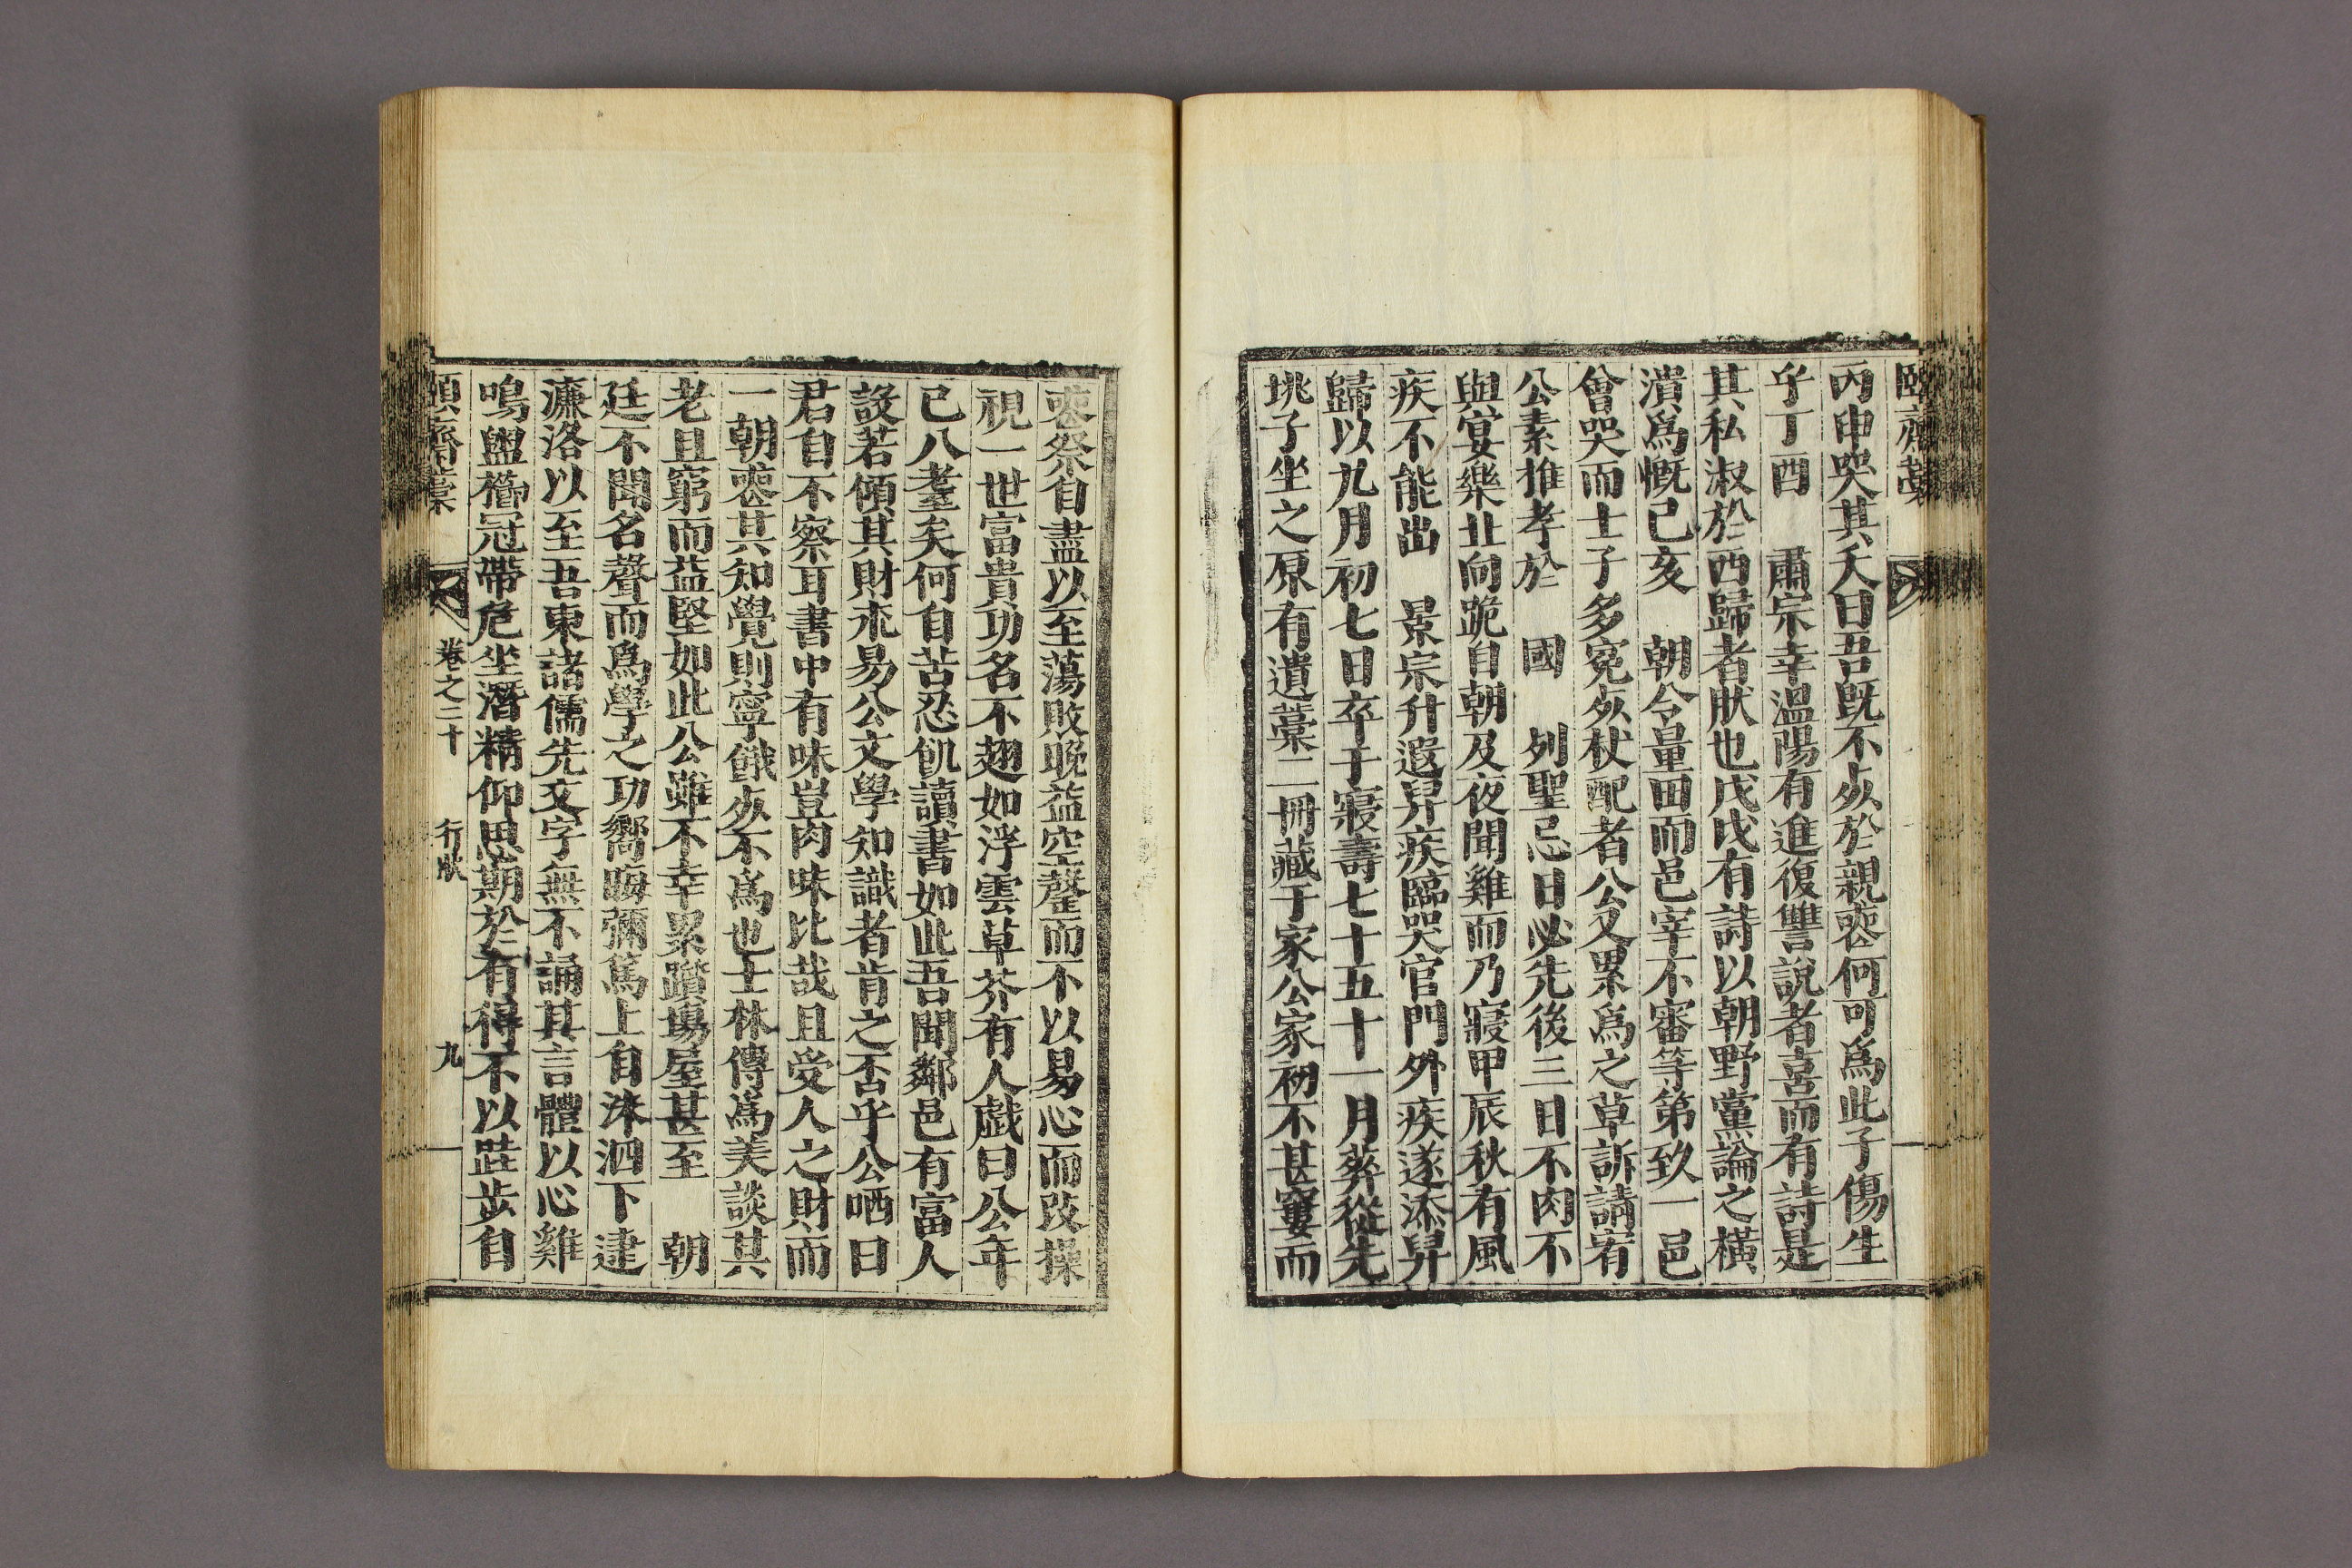 頤齋藁
丙申哭其夭曰吾旣不死於親喪何可爲此子傷生
乎丁酉　肅宗幸溫陽有進復讐說者喜而有詩是
其私淑於西歸者肰也戊戌有詩以朝野黨論之橫
潰爲慨己亥　朝令量田而邑宰不審等第致一邑
會哭而士子多寃死杖配者公又累爲之草訴請宥
公素推孝於　國　列聖忌日必先後三日不肉不
與宴樂北向跪自朝及夜聞雞而乃寢甲辰秋有風
疾不能出　景宗升遐舁疾臨哭官門外疾遂添舁
歸以九月初七日卒于寢壽七十五十一月葬從先
垗子坐之原有遺藁二冊藏于家公家初不甚窶而
喪祭自盡以至蕩敗晩益空罄而不以易心而改操
視一世富貴功名不翅如浮雲草芥有人戱曰公年
已八耋矣何自苦忍飢讀書如此吾聞鄰邑有富人
設若傾其財來易公文學知識者肯之否乎公哂曰
君自不察耳書中有味豈肉味比哉且受人之財而
一朝喪其知覺則寧餓死不爲也士林傳爲美談其
老且窮而益堅如此公雖不幸累躓塲屋甚至　朝
廷不聞名聲而爲學之功嚮晦彌篤上自洙泗下逮
濂洛以至吾東諸儒先文字無不誦其言體以心雞
鳴盥櫛冠帶危坐潛精仰思期於有得不以跬步自
頤齋藁　卷之二十　行肰　九